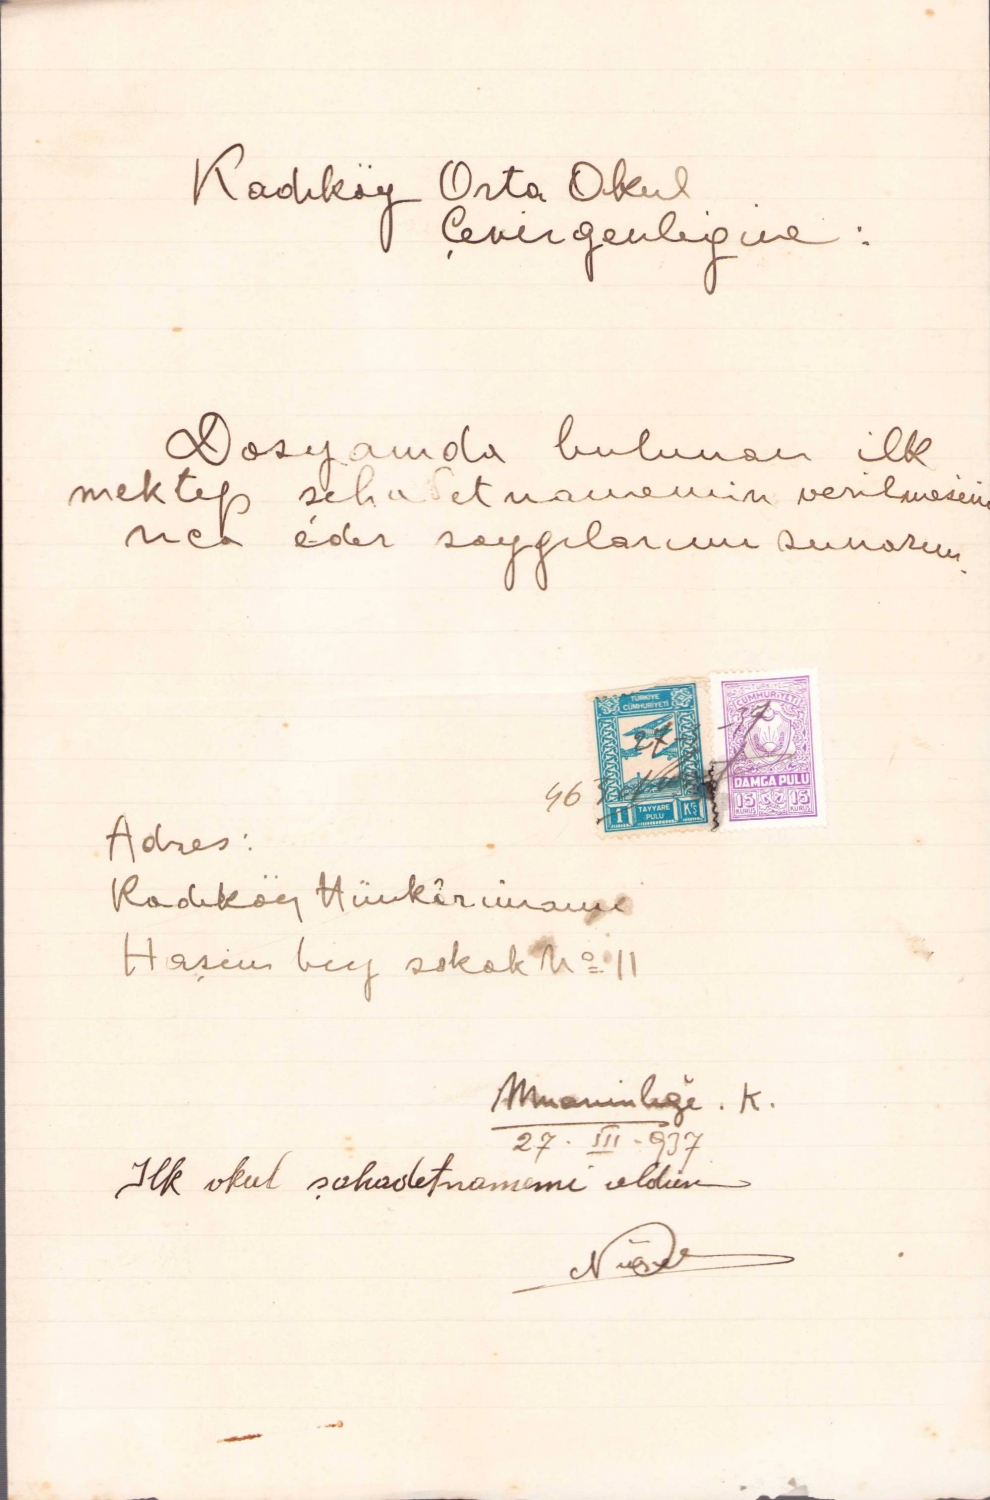 Kadıköy Orta Okul
Çevirgenligine :
Dosyamda bulunan ilk
mektep şehadetnamemin verilmesini
rica eder saygılarımı sunarım.
TÜRKİYE
CÜMHURİYETİ
27
1 TAYYARE PULU KRŞ
TÜRKİYE
CUMHURİYETİ
37
DAMGA PULU
15 KURUŞ 15 KURUŞ
463
Adres:
Kadıköy Hünkârimamı
Haşim bey sokak No 11
K.
27. III. 937
İlk okul şahadetnamemi aldım